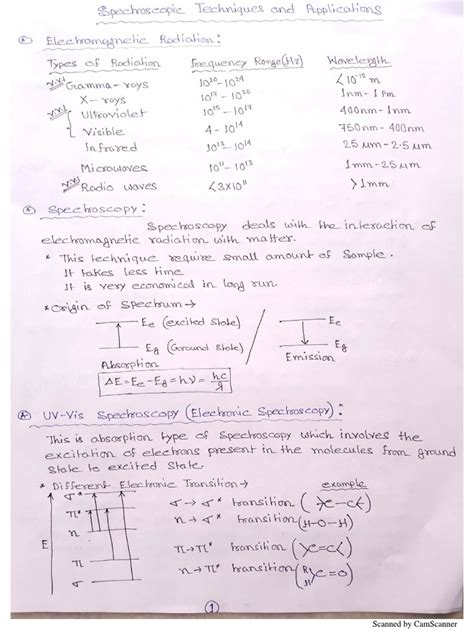 Spectroscopic Techniques and Applications
Electromagnetic Radiation:
Types of Radiation Frequency Range (Hz) Wavelength
Gramma-rays 10²⁰-10²⁴ <10⁻¹² m
X-rays 10¹⁷-10²⁰ 1nm-1Pm
Ultraviolet 10¹⁵-10¹⁷ 400nm-1nm
Visible 4-10¹⁴ 750nm-400nm
Infrared 10¹³-10¹⁴ 25 μm-2.5 μm
Microwaves 10¹¹-10¹³ 1mm-25μm
Radio waves <3X10¹¹ >1mm
Spectroscopy:
Spectroscopy deals with the interaction of
electromagnetic radiation with matter.
* This technique require small amount of Sample.
It takes less time
It is very economical in long run.
* Origin of Spectrum→
Ee (excited State) / Ee
Eg (Ground State) Eg
Absorption Emission
ΔE=Ee-Eg=hν=hc/λ
UV-Vis Spectroscopy (Electronic Spectroscopy):
This is absorption type of Spectroscopy which involves the
excitation of electrons present in the molecules from ground
state to excited State.
* Different Electronic Transition→ example
σ* σ→σ* transition (>C-C<)
π* n→σ* transition (H-O-H)
n
E π→π* transition (>C=C<)
π n→π* transition (R H >C=O)
σ
1
Scanned by CamScanner